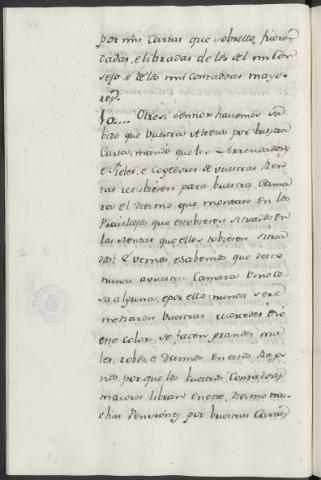 por mis cartas que sobrello fueron
dadas, e libradas de los del mi Con
sejo, e de los mis Contadores mayo
res.
10.... Otrosi señor havemos sa
bido que vuestra Alteza por vuestras
Cartas, mando que los Arrendadores,
e Fieles, e Cogedores de vuestras Ren
tas recibiesen para vuestra Cama
ra el diezmo, que montare en los
Privilejos que estobieren situados en
las Rentas que ellos tobieren
E vemos, e sabemos que desto
nunca a vuestra Camara vino co
sa alguna, e por ello nunca se re
mediaron vuestras
este color se facen grandes ma
les, robos e Daños en estos Rey
nos, porque los vuestros Contadores
maiores libran en este diezmo mu
chas Pensiones por vuestras Cartas